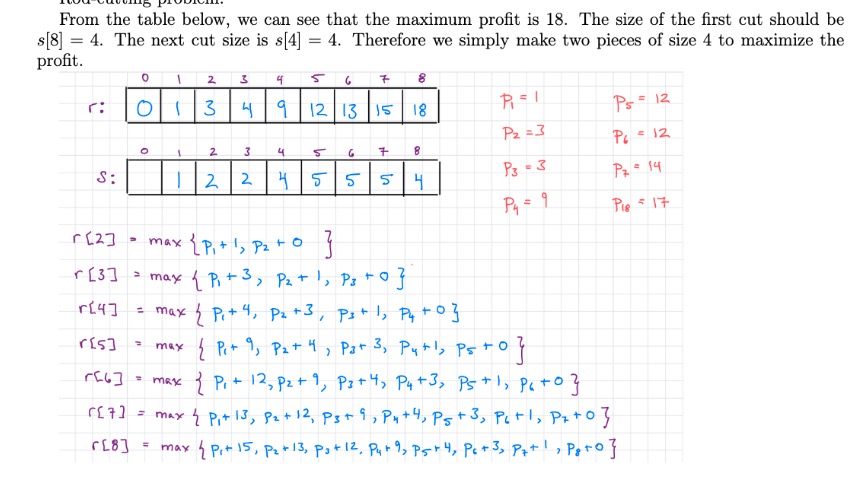 Rod-cutting problem.
From the table below, we can see that the maximum profit is 18. The size of the first cut should be
s[8] = 4. The next cut size is s[4] = 4. Therefore we simply make two pieces of size 4 to maximize the
profit.
0 1 2 3 4 5 6 7 8
r: 0 1 3 4 9 12 13 15 18
P₁ = 1 P₅ = 12
P₂ = 3 P₆ = 12
0 1 2 3 4 5 6 7 8
s: 1 2 2 4 5 5 5 4
P₃ = 3 P₇ = 14
P₄ = 9 P₁₈ = 17
r[2] = max {P₁ + 1, P₂ + 0 }
r[3] = max { P₁ + 3, P₂ + 1, P₃ + 0 }
r[4] = max { P₁ + 4, P₂ + 3, P₃ + 1, P₄ + 0 }
r[5] = max { P₁ + 9, P₂ + 4, P₃ + 3, P₄ + 1, P₅ + 0 }
r[6] = max { P₁ + 12, P₂ + 9, P₃ + 4, P₄ + 3, P₅ + 1, P₆ + 0 }
r[7] = max { P₁ + 13, P₂ + 12, P₃ + 9, P₄ + 4, P₅ + 3, P₆ + 1, P₇ + 0 }
r[8] = max { P₁ + 15, P₂ + 13, P₃ + 12, P₄ + 9, P₅ + 4, P₆ + 3, P₇ + 1, P₈ + 0 }